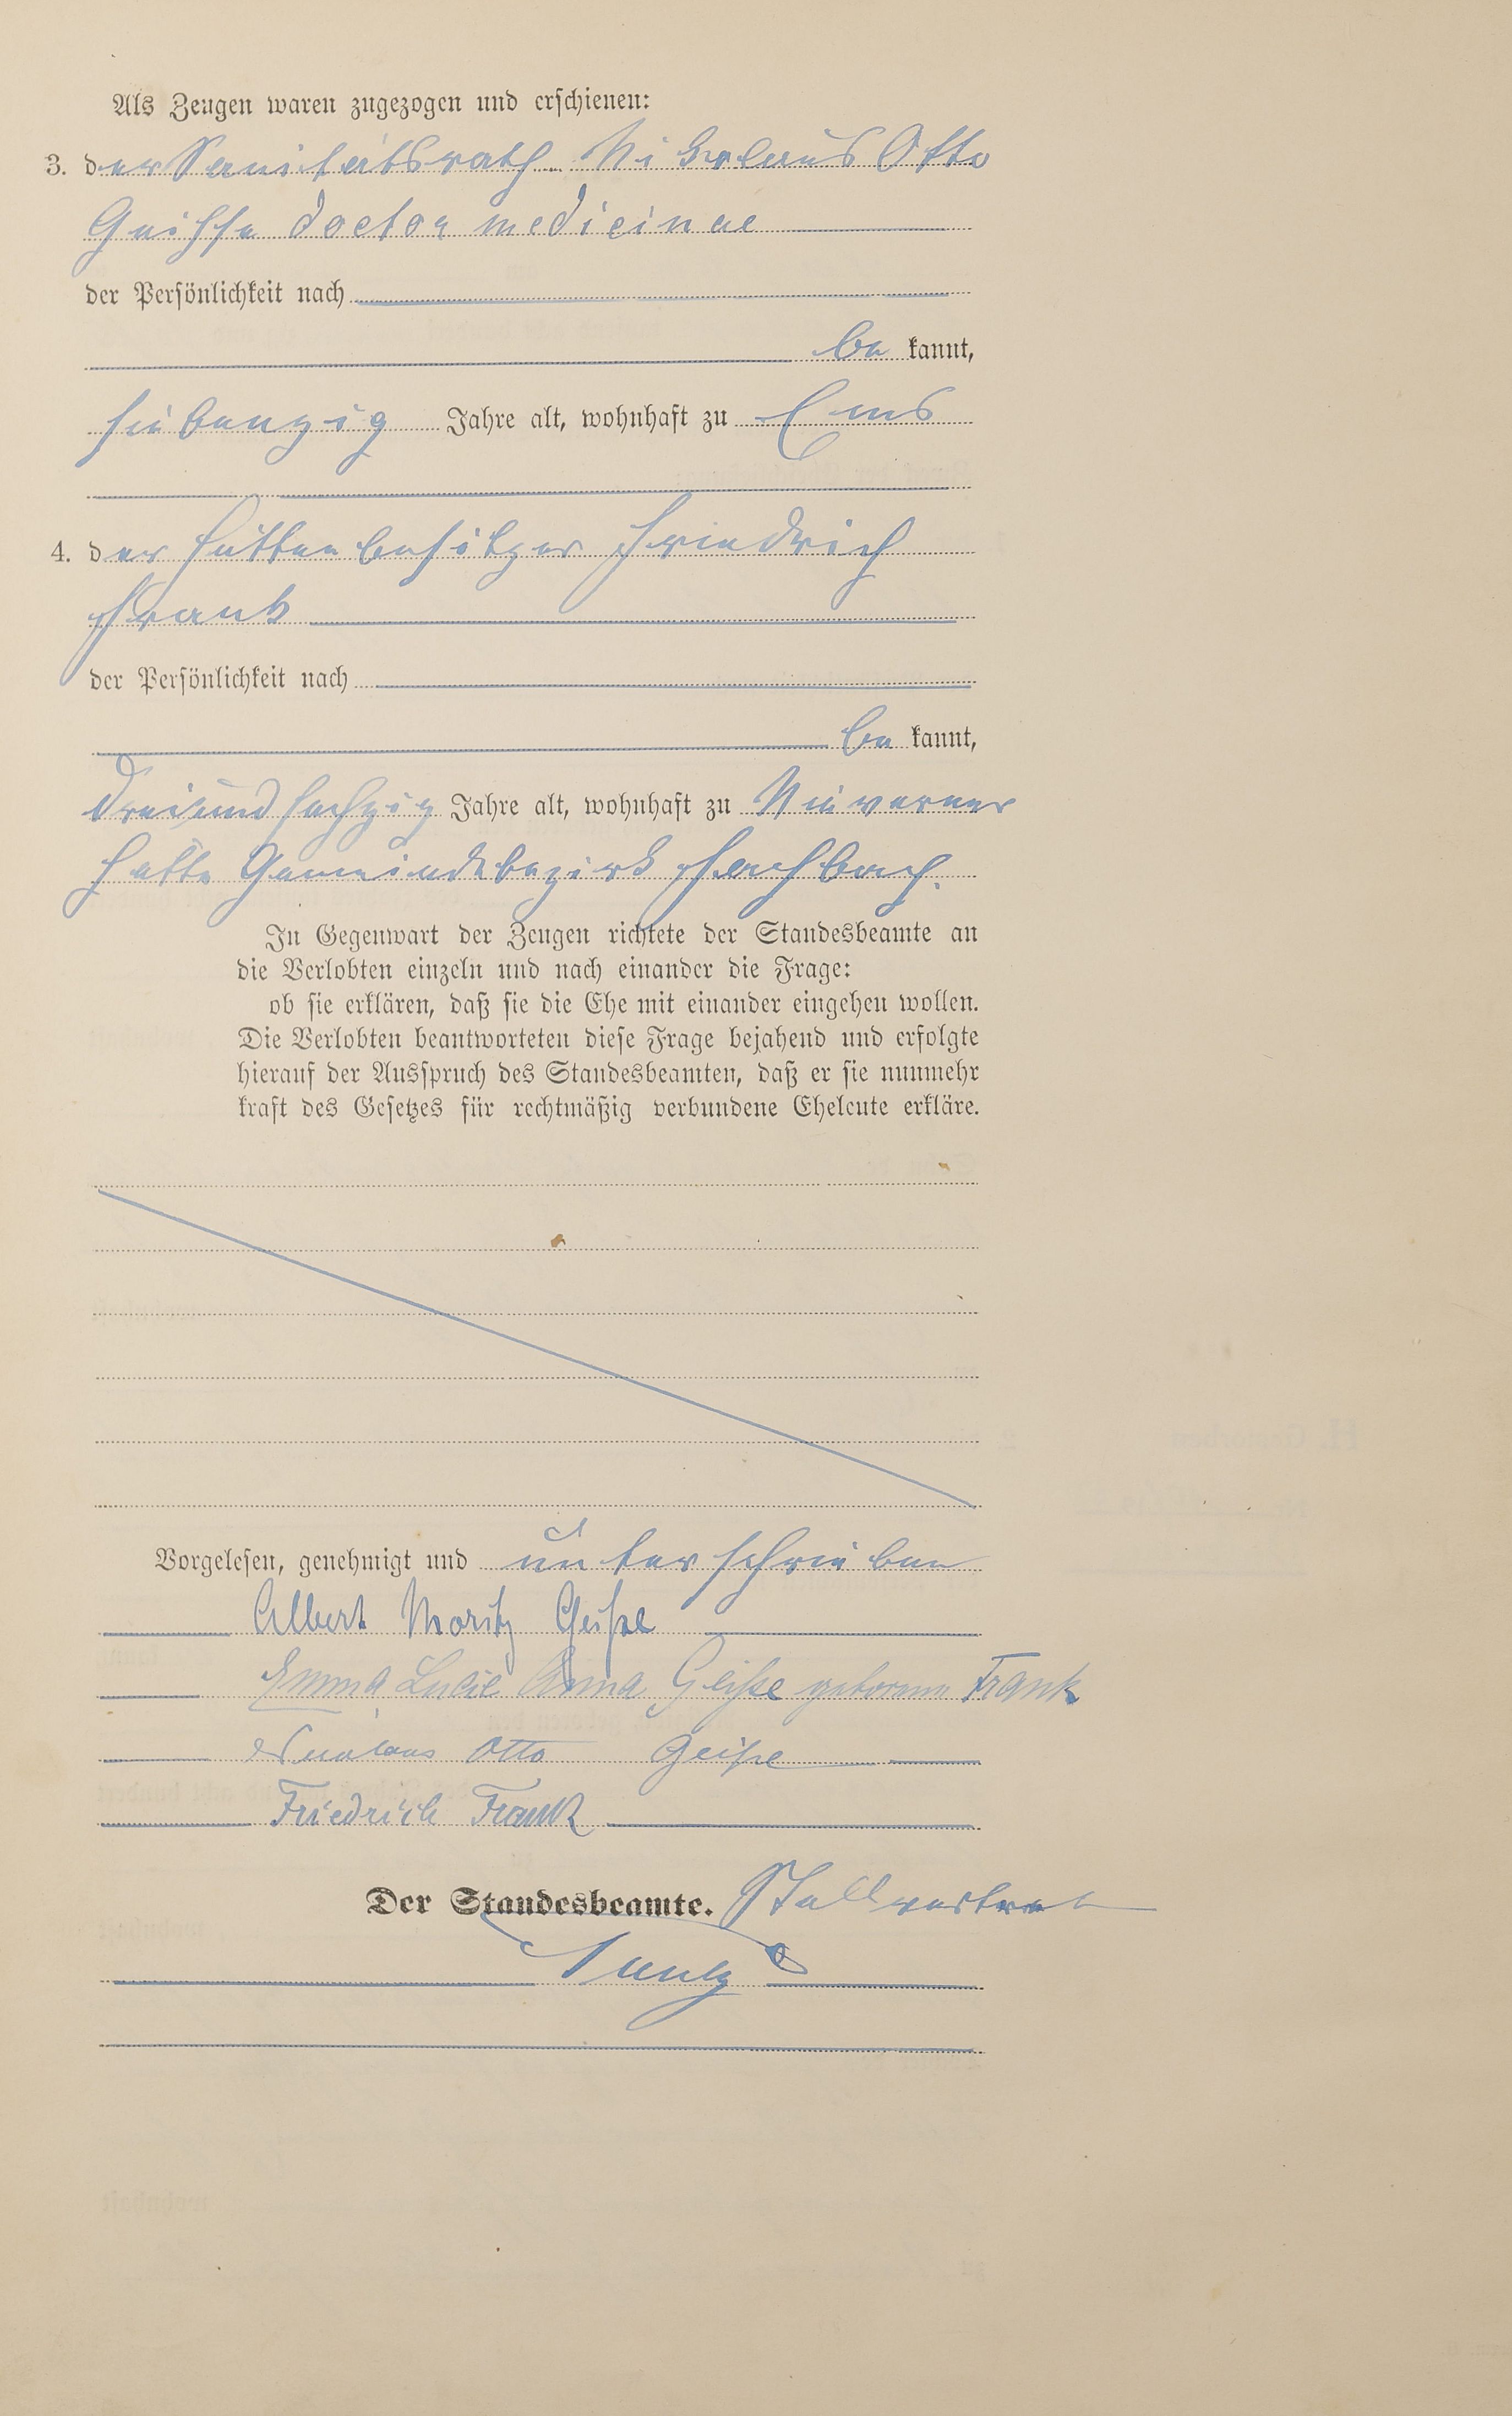 Als Zeugen waren zugezogen und erschienen:
3. der Sanitätsrath Nikolaus Otto
Geisse doctor medicinae
der Persönlichkeit nach
be kannt,
siebenzig Jahre alt, wohnhaft zu Ems
4. der Hüttenbesitzer Friedrich
Frank
der Persönlichkeit nach
be kannt,
dreiundsechzig Jahre alt, wohnhaft zu Nieverner
Hütte Gemeindebezirk Fachbach.
In Gegenwart der Zeugen richtete der Standesbeamte an
die Verlobten einzeln und nach einander die Frage:
ob sie erklären, daß sie die Ehe mit einander eingehen wollen.
Die Verlobten beantworteten diese Frage bejahend und erfolgte
hierauf der Ausspruch des Standesbeamten, daß er sie nunmehr
kraft des Gesetzes für rechtmäßig verbundene Eheleute erkläre.
Vorgelesen, genehmigt und unterschrieben
Albert Moritz Geiße
Emma Lucie Anna Geiße geborene Frank
Nicolaus Otto Geiße
Friedrich Frank
Der Standesbeamte.